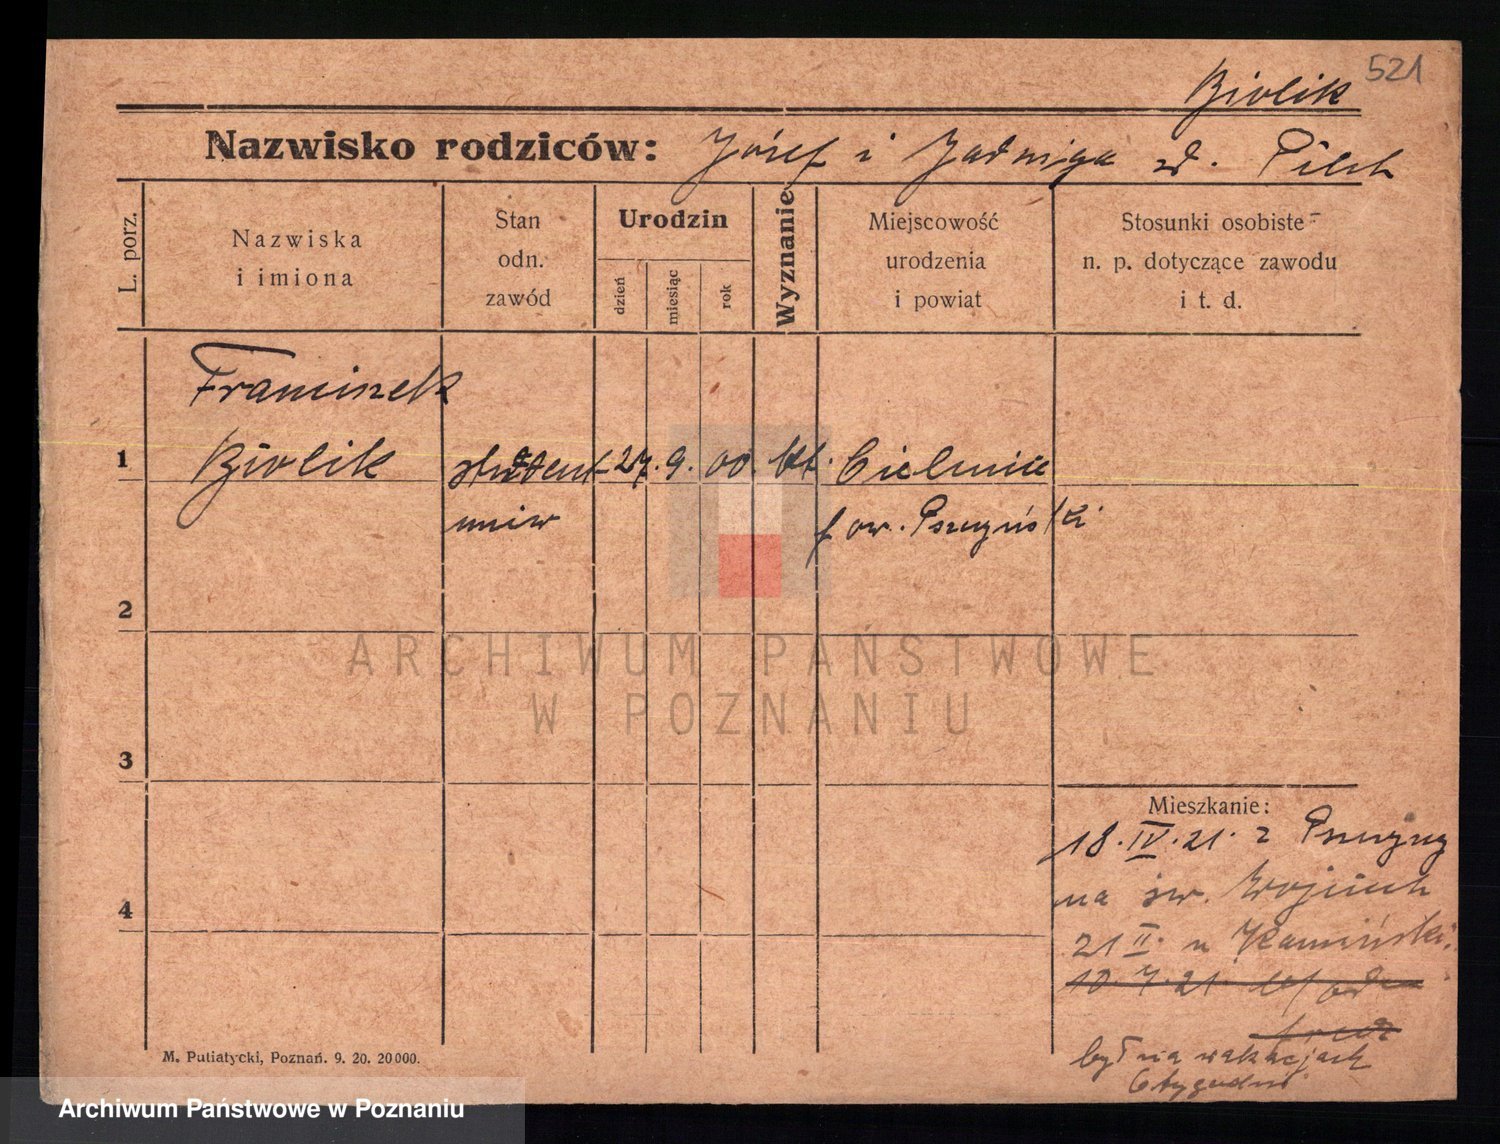 521
Biolik
Nazwisko rodziców: Józef i Jadwiga zd. Pilch
L. porz.
Nazwiska
i imiona
Stan
odn.
zawód
Urodzin
dzień
miesiąc
rok
Wyznanie
Miejscowość
urodzenia
i powiat
Stosunki osobiste
n. p. dotyczące zawodu
i t. d.
Franciszek
1 Biolik student 27. 9. 00. kt. Cielmice
uniw pow. Pszczyński
2
3
4
Mieszkanie:
18.IV.21. z Pszczyny
na św. Wojciech
21 II. u Kamiński
10.7.21.
był na wakacjach
6 tygodni
M. Putiatycki, Poznań. 9. 20. 20000.
ARCHIWUM PAŃSTWOWE
W POZNANIU
Archiwum Państwowe w Poznaniu